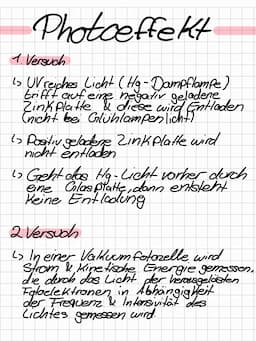 Photoeffekt
1. Versuch
↳ UV reiches Licht (Hg-Dampflampe)
trifft auf eine negativ geladene
Zinkplatte & diese wird Entladen
(nicht bei Glühlampenlicht)
↳ Positiv geladene Zinkplatte wird
nicht entladen
↳ Geht das Hg-Licht vorher durch
eine Glasplatte, dann entsteht
keine Entladung
2. Versuch
↳ In einer Vakuumfotozelle wird
Strom & kinetische Energie gemessen,
die durch das Licht der herausgelösten
Fotoelektronen in Abhängigkeit
der Frequenz & Intensivität des
Lichtes gemessen wird